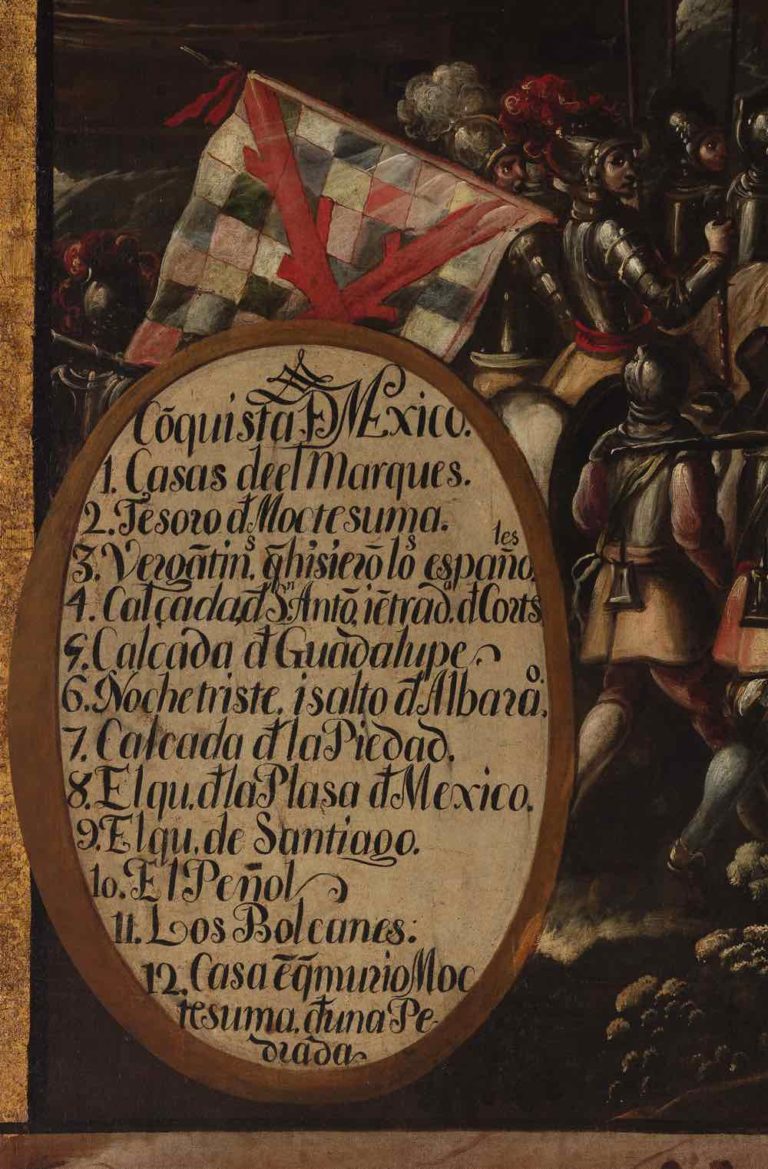 Cõquista Đ MExico.
1. Casas deel Marques.
2. Tesoro đ Moctesuma.
3. Vergãtinˢ. q̃ hisierõ loˢ españoles
4. Calçada, đ Sⁿ Antõ, iẽtradª. đ Corts
5. Calcada đ Guadalupe
6. Noche triste, i salto đ Albaraº.
7. Calcada đ la Piedad.
8. El qu. đ la Plasa đ Mexico.
9. El qu. de Santiago.
10. El Peñol
11. Los Bolcanes.
12. Casa ẽ q̃ murio Moc
tesuma. đ una Pe
drada